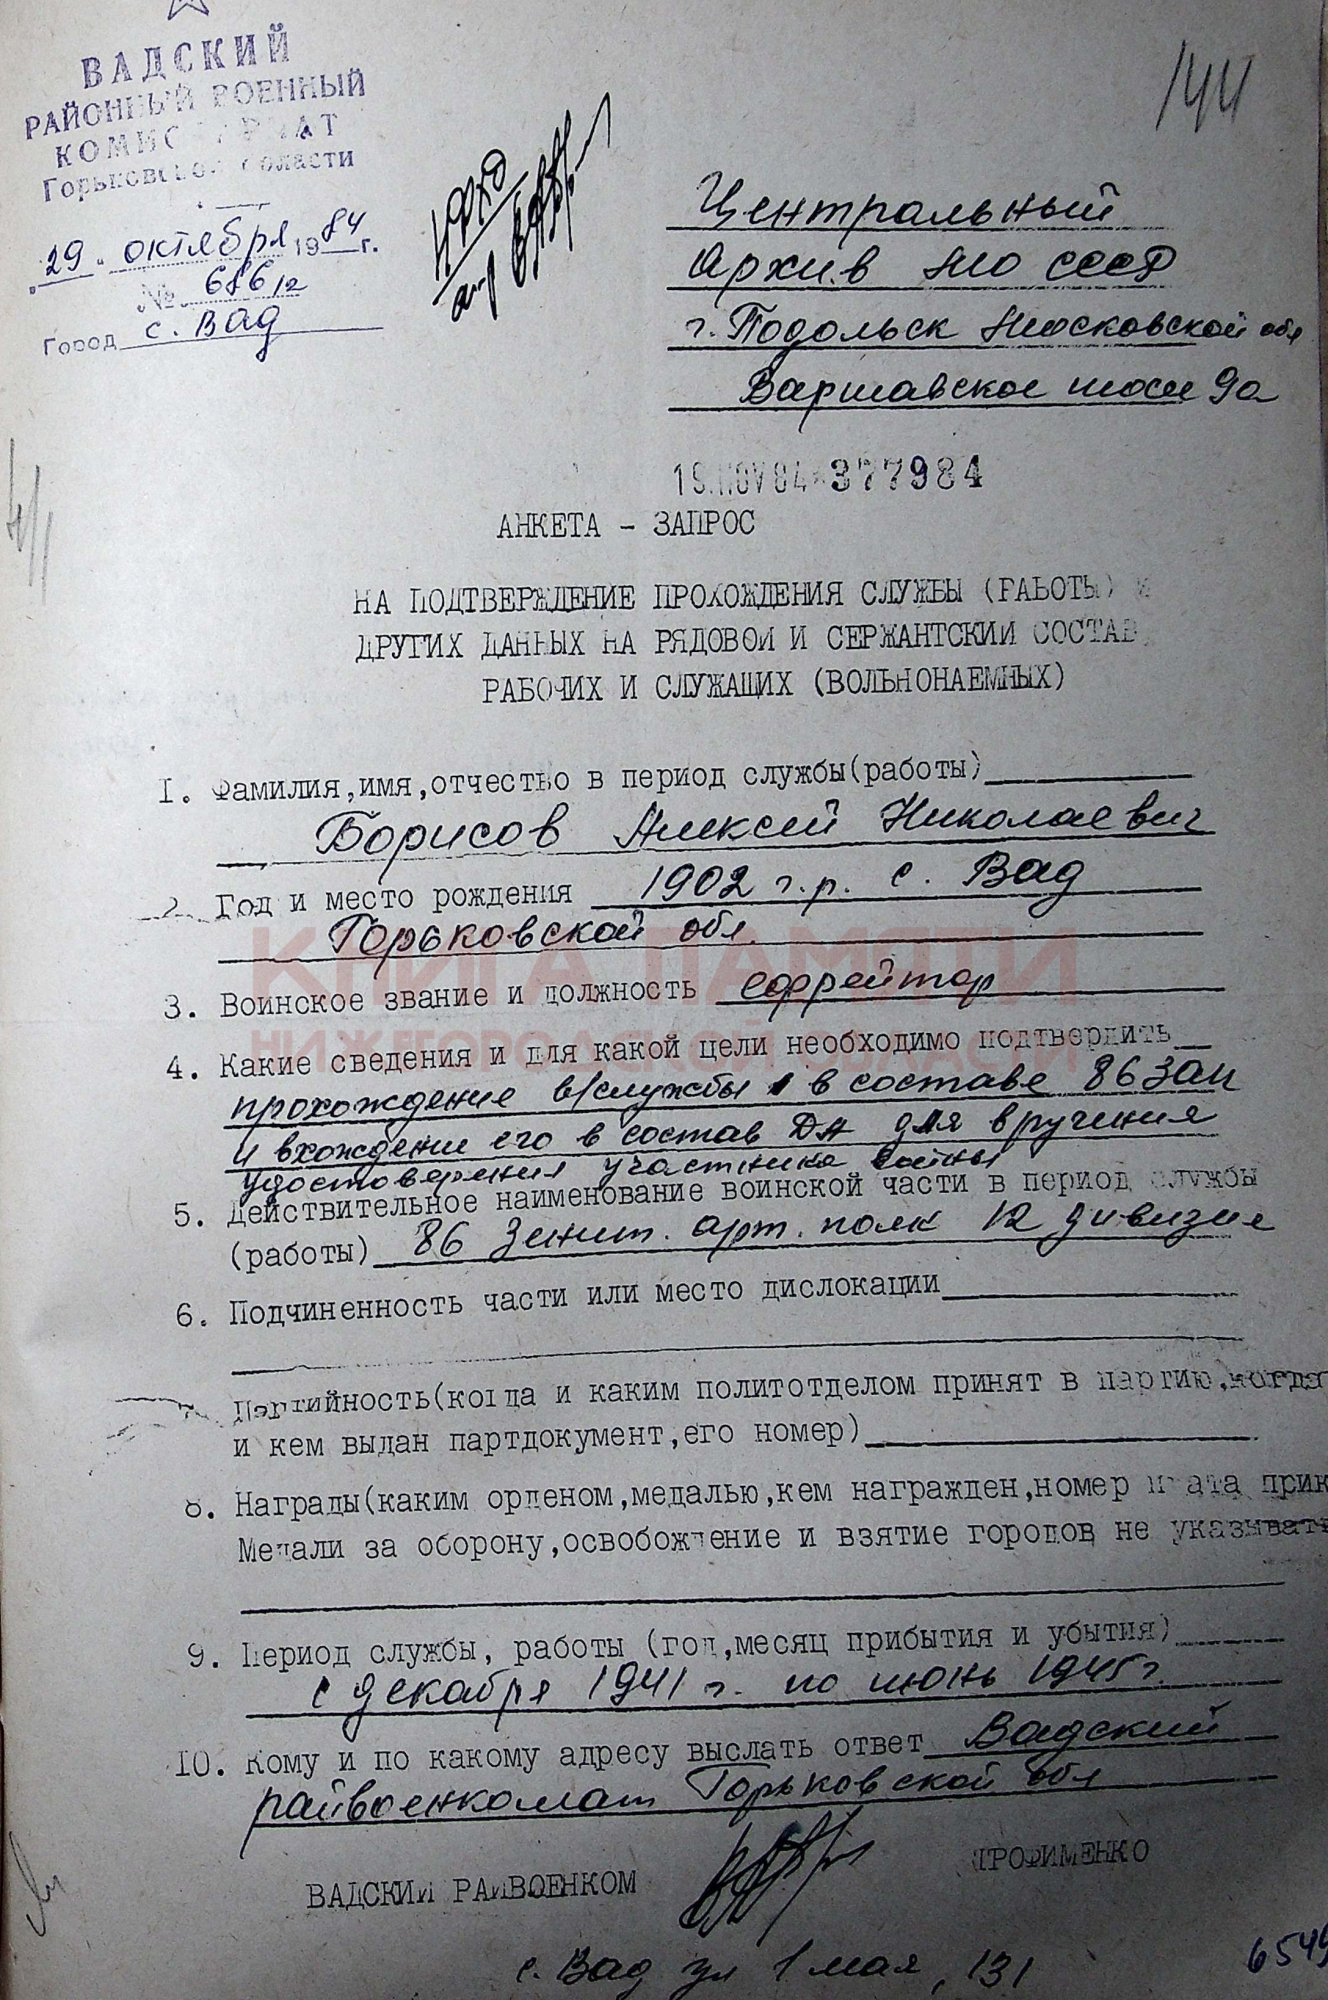 144
ВАДСКИЙ
РАЙОННЫЙ ВОЕННЫЙ
КОМИССАРИАТ
Горьковской области
29. октября 1984 г.
№ 686/2
Город с. Вад
Центральный
Архив МО СССР
г. Подольск Московской обл
Варшавское шоссе 9а
19.NOV 84 * 377984
АНКЕТА - ЗАПРОС
НА ПОДТВЕРЖДЕНИЕ ПРОХОЖДЕНИЯ СЛУЖБЫ (РАБОТЫ) И
ДРУГИХ ДАННЫХ НА РЯДОВОЙ И СЕРЖАНТСКИЙ СОСТАВ,
РАБОЧИХ И СЛУЖАЩИХ (ВОЛЬНОНАЕМНЫХ)
1. Фамилия,имя,отчество в период службы(работы)
Борисов Алексей Николаевич
2. Год и место рождения 1902 г.р. с. Вад
Горьковской обл.
КНИГА ПАМЯТИ
3. Воинское звание и должность ефрейтор
НИЖЕГОРОДСКОЙ ОБЛАСТИ
4. Какие сведения и для какой цели необходимо подтвердить
прохождение в/службы в составе 86 ЗАП
и вхождение его в состав ДА для вручения
удостоверения участника войны
5. Действительное наименование воинской части в период службы
(работы) 86 Зенит. арт. полк 12 дивизие
6. Подчиненность части или место дислокации
7. Партийность(когда и каким политотделом принят в партию,когда
и кем выдан партдокумент,его номер)
8. Награды(каким орденом,медалью,кем награжден,номер и дата прик
Медали за оборону,освобождение и взятие городов не указывать
9. Период службы, работы (год,месяц прибытия и убытия)
с декабря 1941 г. по июнь 1945 г.
10. Кому и по какому адресу выслать ответ Вадский
райвоенкомат Горьковской обл
ВАДСКИЙ РАЙВОЕНКОМ ТРОФИМЕНКО
с. Вад ул 1 мая, 131
6549